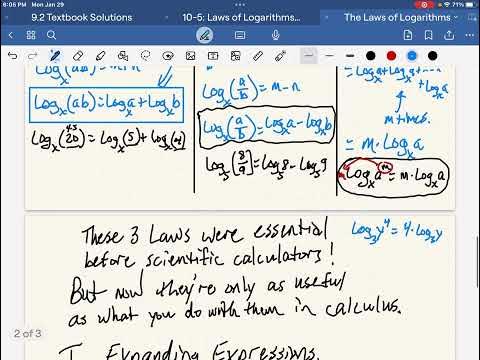 6:05 PM Mon Jan 29
71%
9.2 Textbook Solutions
10-5: Laws of Logarithms...
The Laws of Logarithms
Logₓ(ab)=Logₓa+Logₓb
Logₓ(20)=Logₓ(5)+Logₓ(4)
Logₓ(a/b)=m-n
Logₓ(a/b)=Logₓa-Logₓb
Log₅(8/9)=Log₅8-Log₅9
m times.
=m·Logₓa
Logₓaᵐ=m·Logₓa
Log₃y⁴=4·Log₃y
These 3 Laws were essential
before scientific calculators!
But now they're only as useful
as what you do with them in calculus.
2 of 3
I. Expanding Expressions.